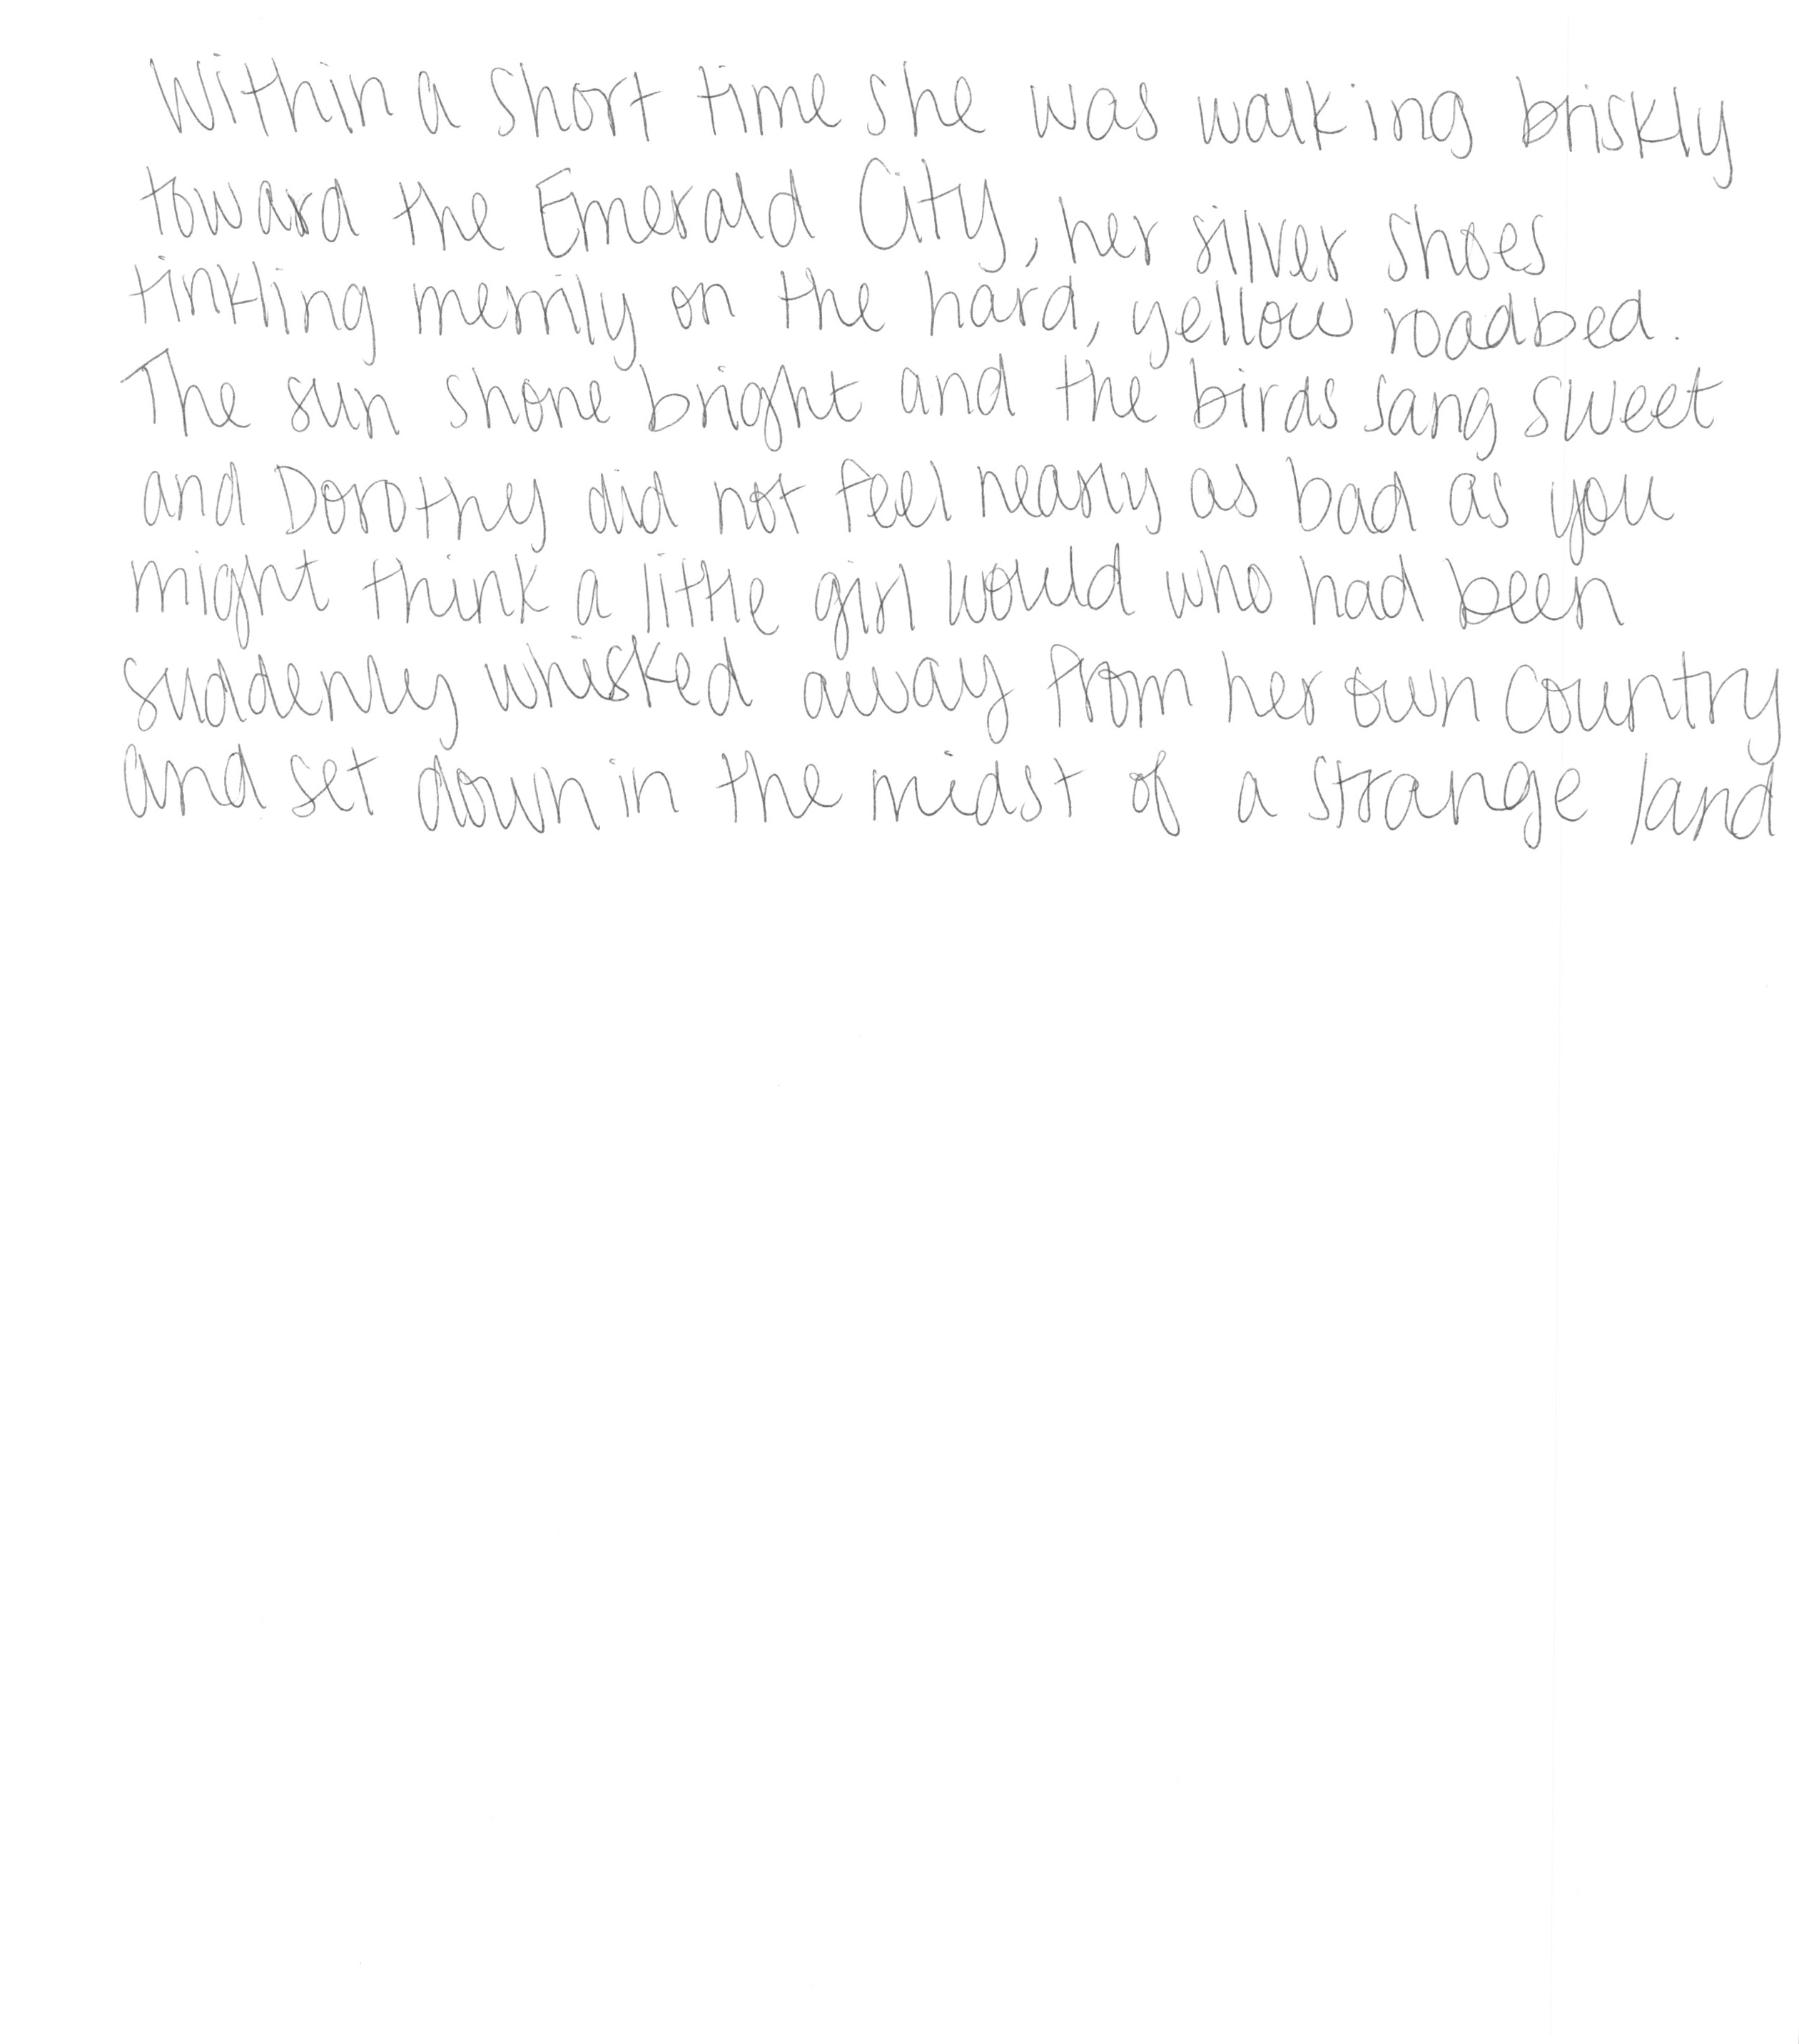 Within a short time she was walking briskly
toward the Emerald City, her silver shoes
tinkling merrily on the hard, yellow roadbed.
The sun shone bright and the birds sang sweet
and Dorothy did not feel nearly as bad as you
might think a little girl would who had been
suddenly whisked away from her own country
and set down in the midst of a strange land